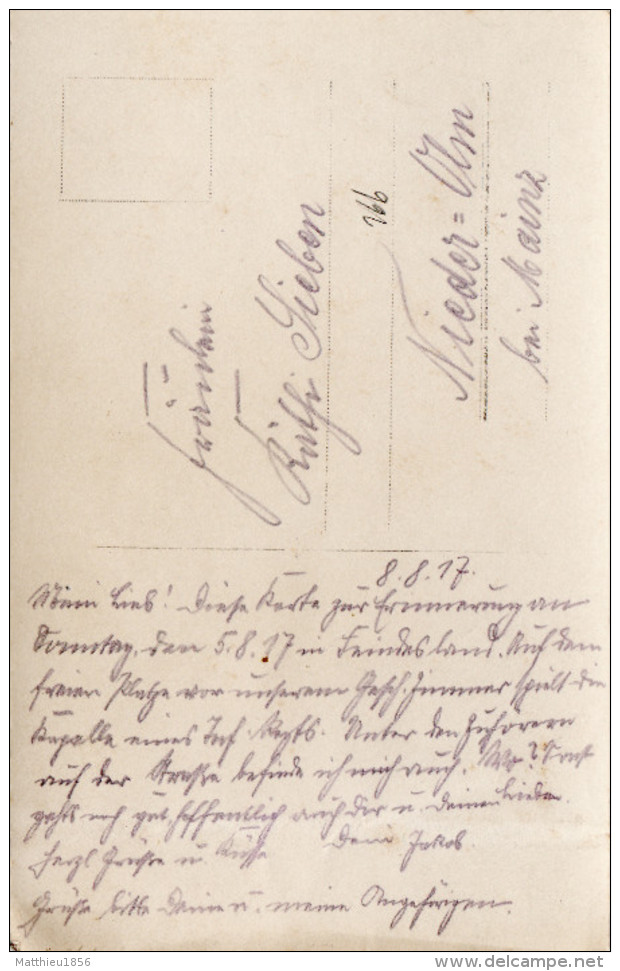 Fräulein
Käthi Sieben
166
Nieder=Olm
bei Mainz
8.8.17.
Mein Lieb! Diese Karte zur Erinnerung an
Sonntag, den 5.8.17 in Feindesland. Auf dem
freien Platze vor unserem Gesch. Zimmer spielt die
Kapelle eines Inf. Regts. Unter den Zuhörern
auf der Strasse befinde ich mich auch. Wo? Sonst
gehts noch gut, hoffentlich auch dir u. deinen Lieben.
Herzl. Grüsse u. Küsse Dein Jakob.
Grüsse bitte Deine u. meine Angehörigen.
Matthieu1856
delcampe.net